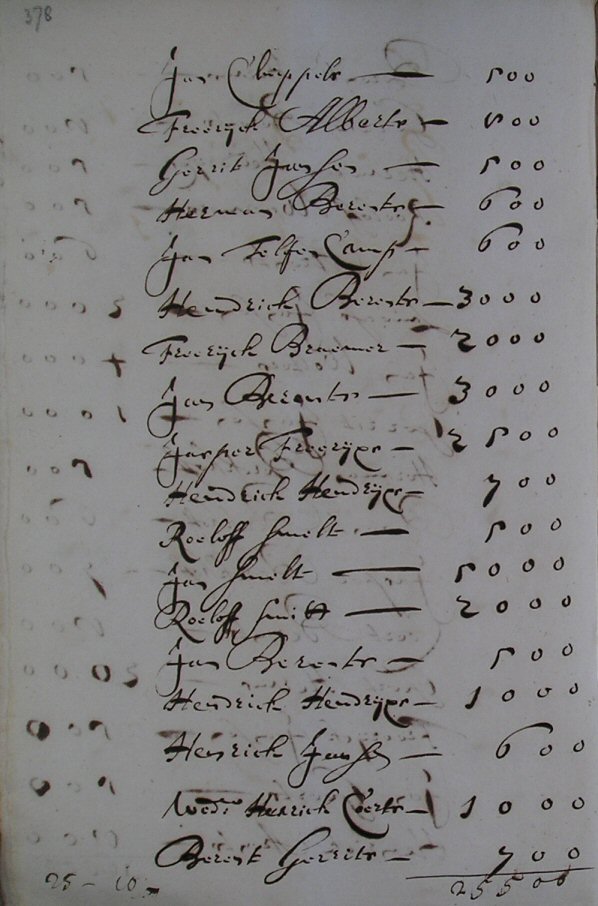 378
Jan Cheppels — 500
Freerijck Alberts — 800
Gerrit Jansen — 500
Herman Berents — 600
Jan Telgen Camp — 600
Hendrick Berents — 3000
Freerijck Braemer — 2000
Jan Berents — 3000
Jasper Freerijxs — 2500
Hendrick Hendrijxs — 700
Roeloff Smelt — 500
Jan Smelt — 5000
Roeloff Smitt — 2000
Jan Berents — 500
Hendrick Hendrijxs — 1000
Henrick Jansen — 600
Wede Henrick Coerts — 1000
Berent Gerrits — 700
25 - 10 - 25500